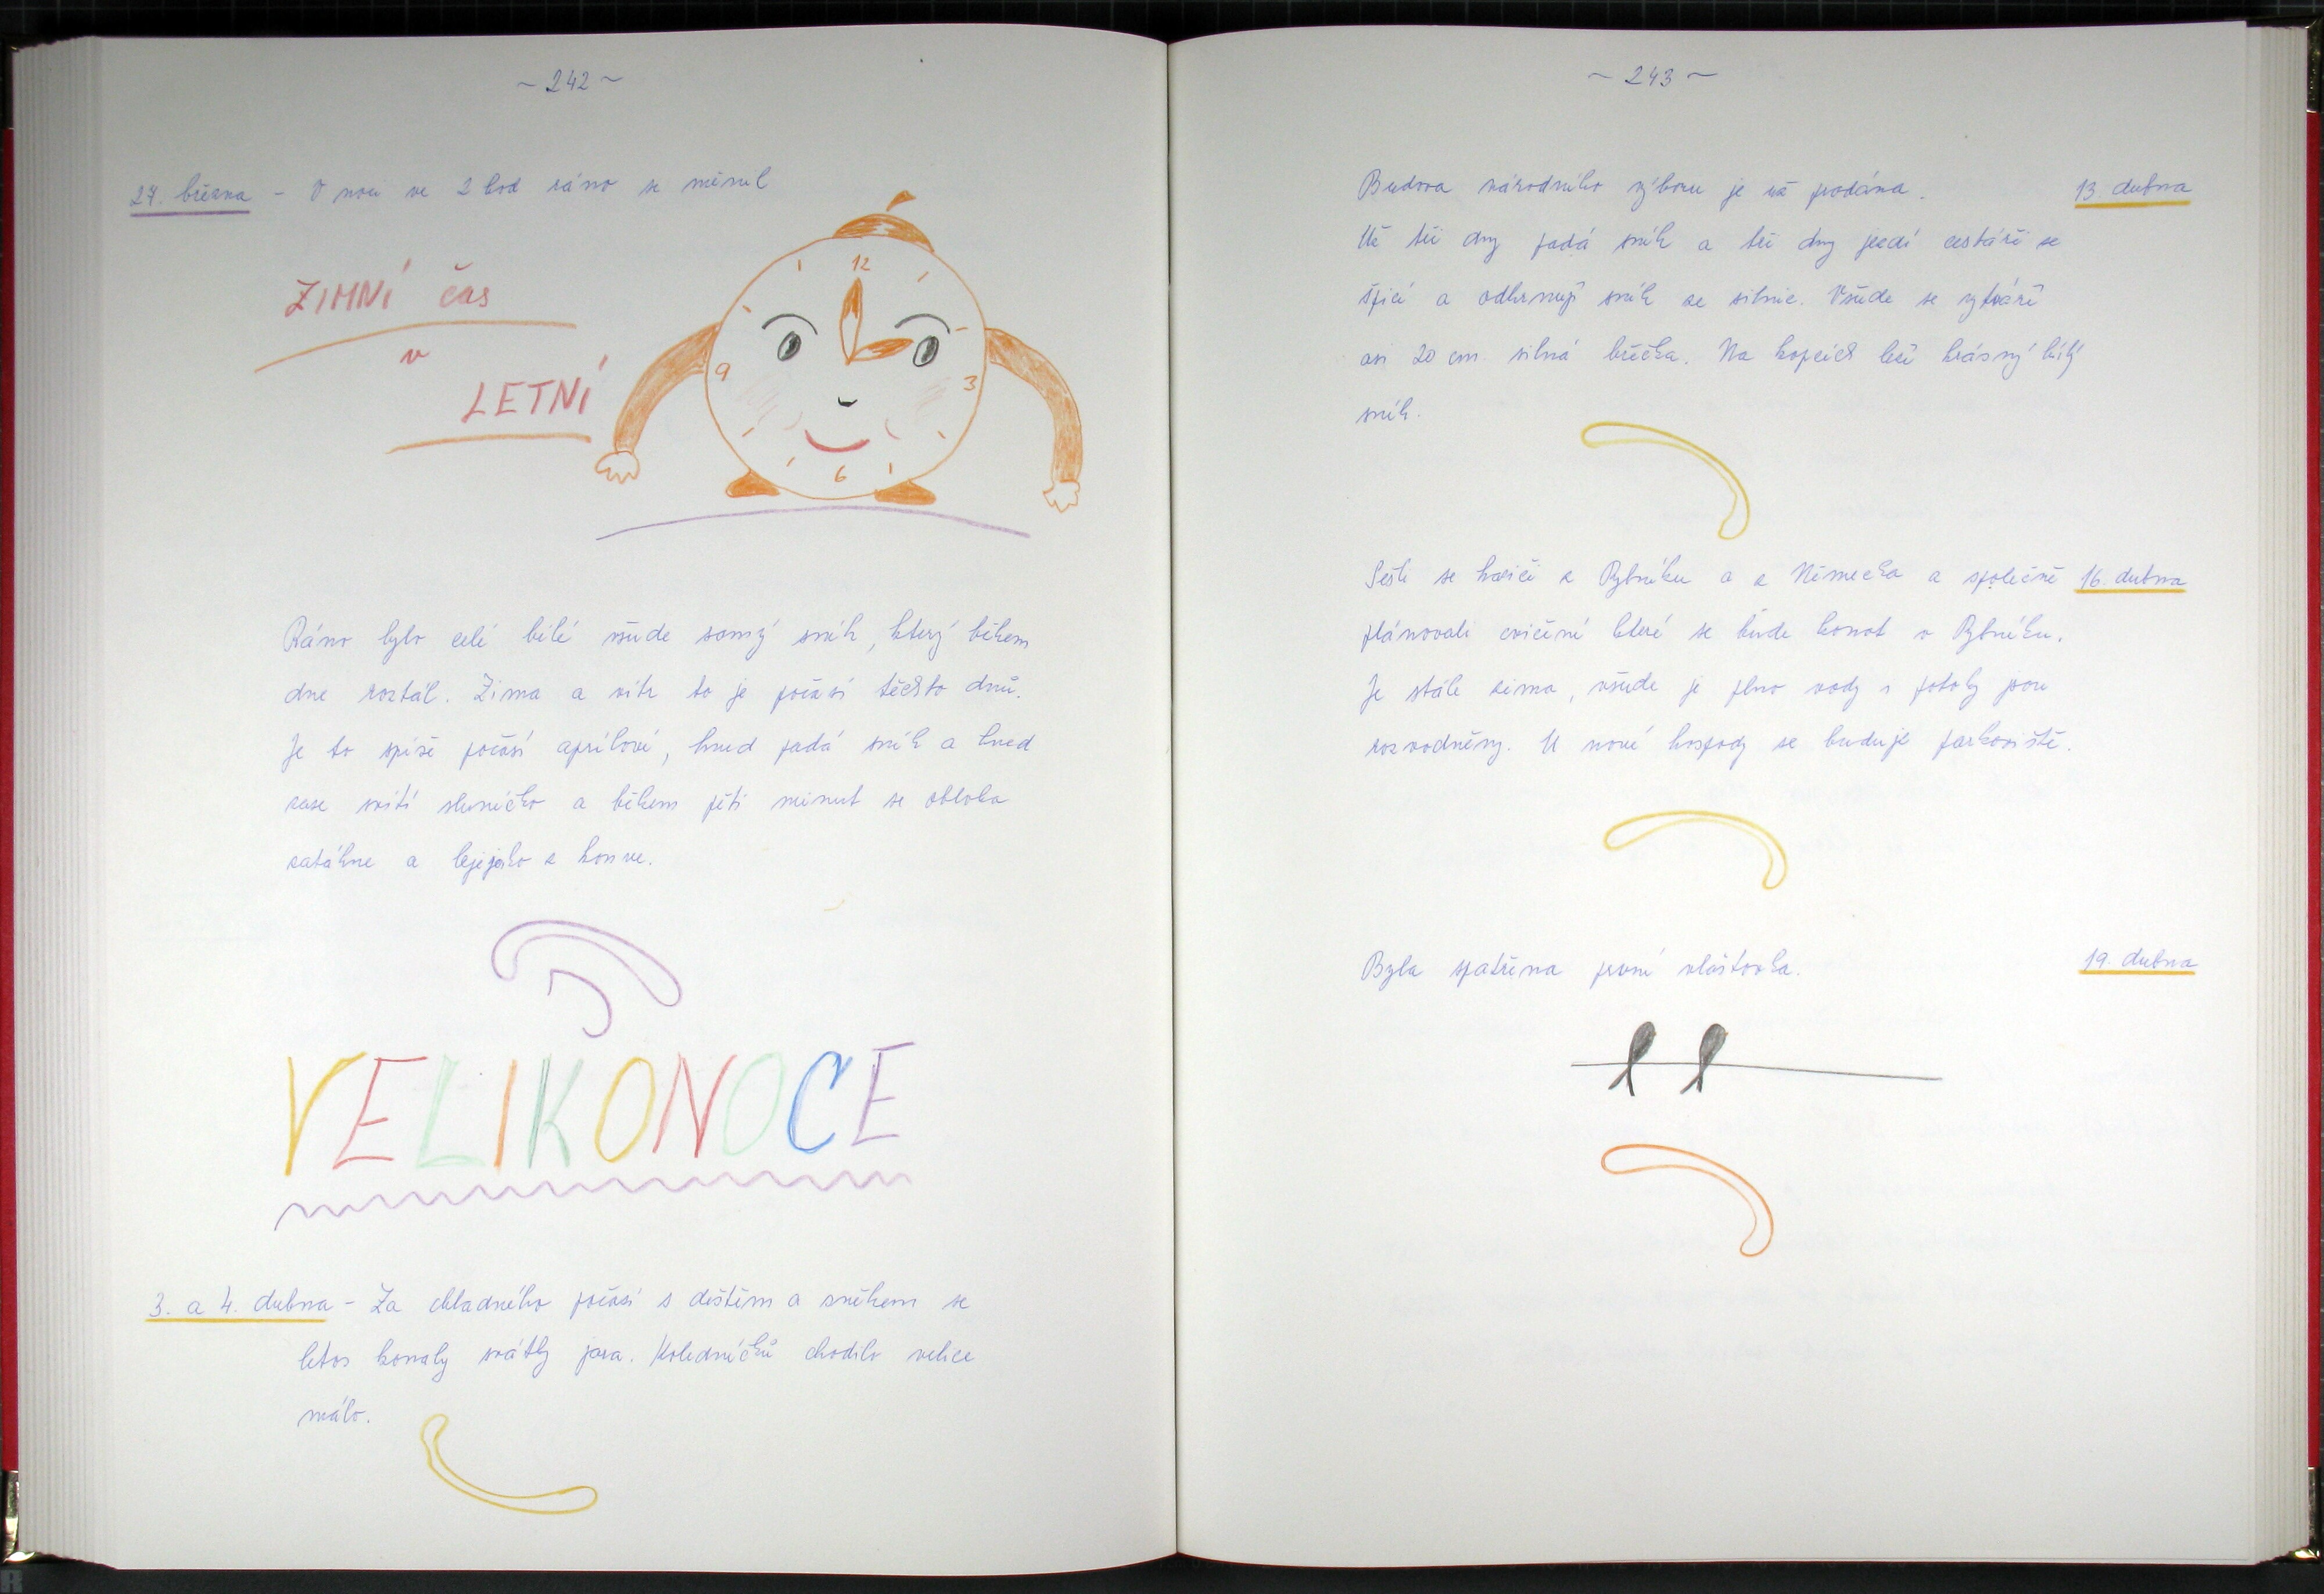 ~ 242 ~
27. března - V noci ve 2 hod ráno se měnil
ZIMNÍ čas
v
LETNÍ
12
9
3
6
Ráno bylo celé bílé všude samý sníh, který během
dne roztál. Zima a vítr to je počasí těchto dnů.
Je to spíše počasí aprílové, hned padá sníh a hned
zase svítí sluníčko a během pěti minut se obloha
zatáhne a leje jako z konve.
VELIKONOCE
3. a 4. dubna - Za chladného počasí s deštěm a sněhem se
letos konaly svátky jara. Koledníčků chodilo velice
málo.
~ 243 ~
Budova národního výboru je už prodána. 13. dubna
Už tři dny padá sníh a tři dny jezdí cestáři se
špicí a odhrnují sníh ze silnic. Všude se vytváří
asi 20 cm silná břečka. Na kopcích leží krásný bílý
sníh.
Sešli se hasiči z Rybníku a z Německa a společně 16. dubna
plánovali cvičení které se bude konat v Rybníku.
Je stále zima, všude je plno vody i potoky jsou
rozvodněny. U nové hospody se buduje parkoviště.
Byla spatřena první vlaštovka. 19. dubna